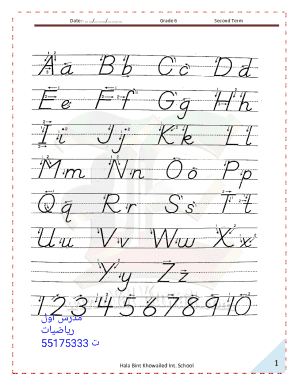 Date:- ... /..../........ Grade 6 Second Term
A a B b C c D d
E e F f G g H h
I i J j K k L l
M m N n O o P p
Q q R r S s T t
U u V v W w X x
Y y Z z
1 2 3 4 5 6 7 8 9 10
مدرس اول
رياضيات
ت 55175333
Hala Bint Khowailed Int. School
1